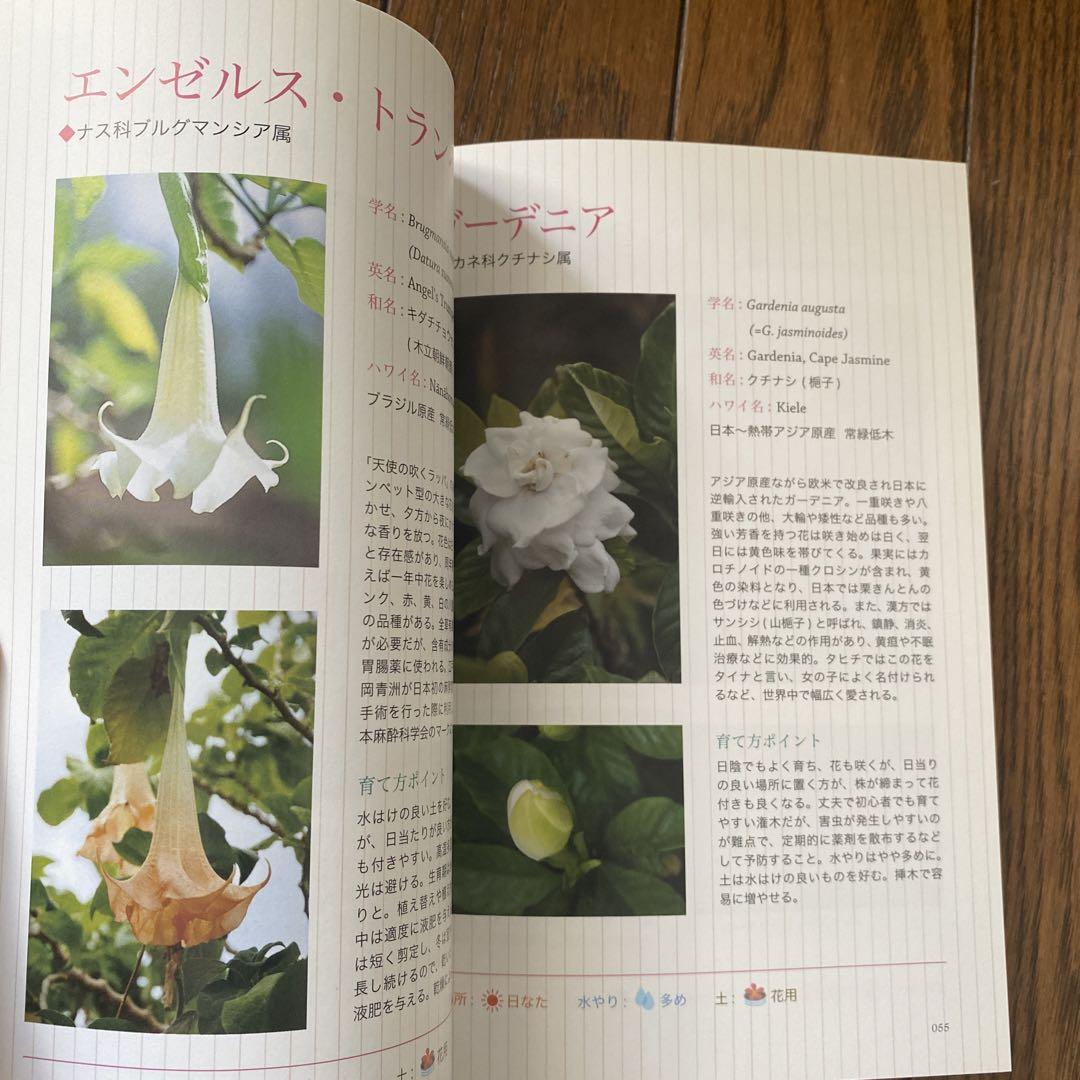 エンゼルス・トラン
◆ナス科ブルグマンシア属
学名：Brugmansia
(Datura
英名：Angel's
和名：キダチチョウ
(木立朝鮮朝顔
ハワイ名：Nānāhonua
ブラジル原産 常緑低
「天使の吹くラッパ」
ンペット型の大きな
かせ、夕方から夜に
な香りを放つ。花色は
と存在感があり、
えば一年中花を楽し
ンク、赤、黄、白の
の品種がある。全草
が必要だが、含有成
胃腸薬に使われる。
岡青洲が日本初の麻
手術を行った際に利
本麻酔科学会のマーク
育て方ポイント
水はけの良い土を好む
が、日当たりが良い
も付きやすい。高温
光は避ける。生育期
りと。植え替えや
中は適度に液肥を与え
は短く剪定し、冬は
長し続けるので、
液肥を与える。
土：花用
ガーデニア
カネ科クチナシ属
学名：Gardenia augusta
(=G. jasminoides)
英名：Gardenia, Cape Jasmine
和名：クチナシ(梔子)
ハワイ名：Kiele
日本〜熱帯アジア原産 常緑低木
アジア原産ながら欧米で改良され日本に
逆輸入されたガーデニア。一重咲きや八
重咲きの他、大輪や矮性など品種も多い。
強い芳香を持つ花は咲き始めは白く、翌
日には黄色味を帯びてくる。果実にはカ
ロチノイドの一種クロシンが含まれ、黄
色の染料となり、日本では栗きんとんの
色づけなどに利用される。また、漢方では
サンシシ(山梔子)と呼ばれ、鎮静、消炎、
止血、解熱などの作用があり、黄疸や不眠
治療などに効果的。タヒチではこの花を
タイナと言い、女の子によく名付けられ
るなど、世界中で幅広く愛される。
育て方ポイント
日陰でもよく育ち、花も咲くが、日当り
の良い場所に置く方が、株が締まって花
付きも良くなる。丈夫で初心者でも育て
やすい潅木だが、害虫が発生しやすいの
が難点で、定期的に薬剤を散布するなど
して予防すること。水やりはやや多めに。
土は水はけの良いものを好む。挿木で容
易に増やせる。
所：日なた 水やり：多め 土：花用
055